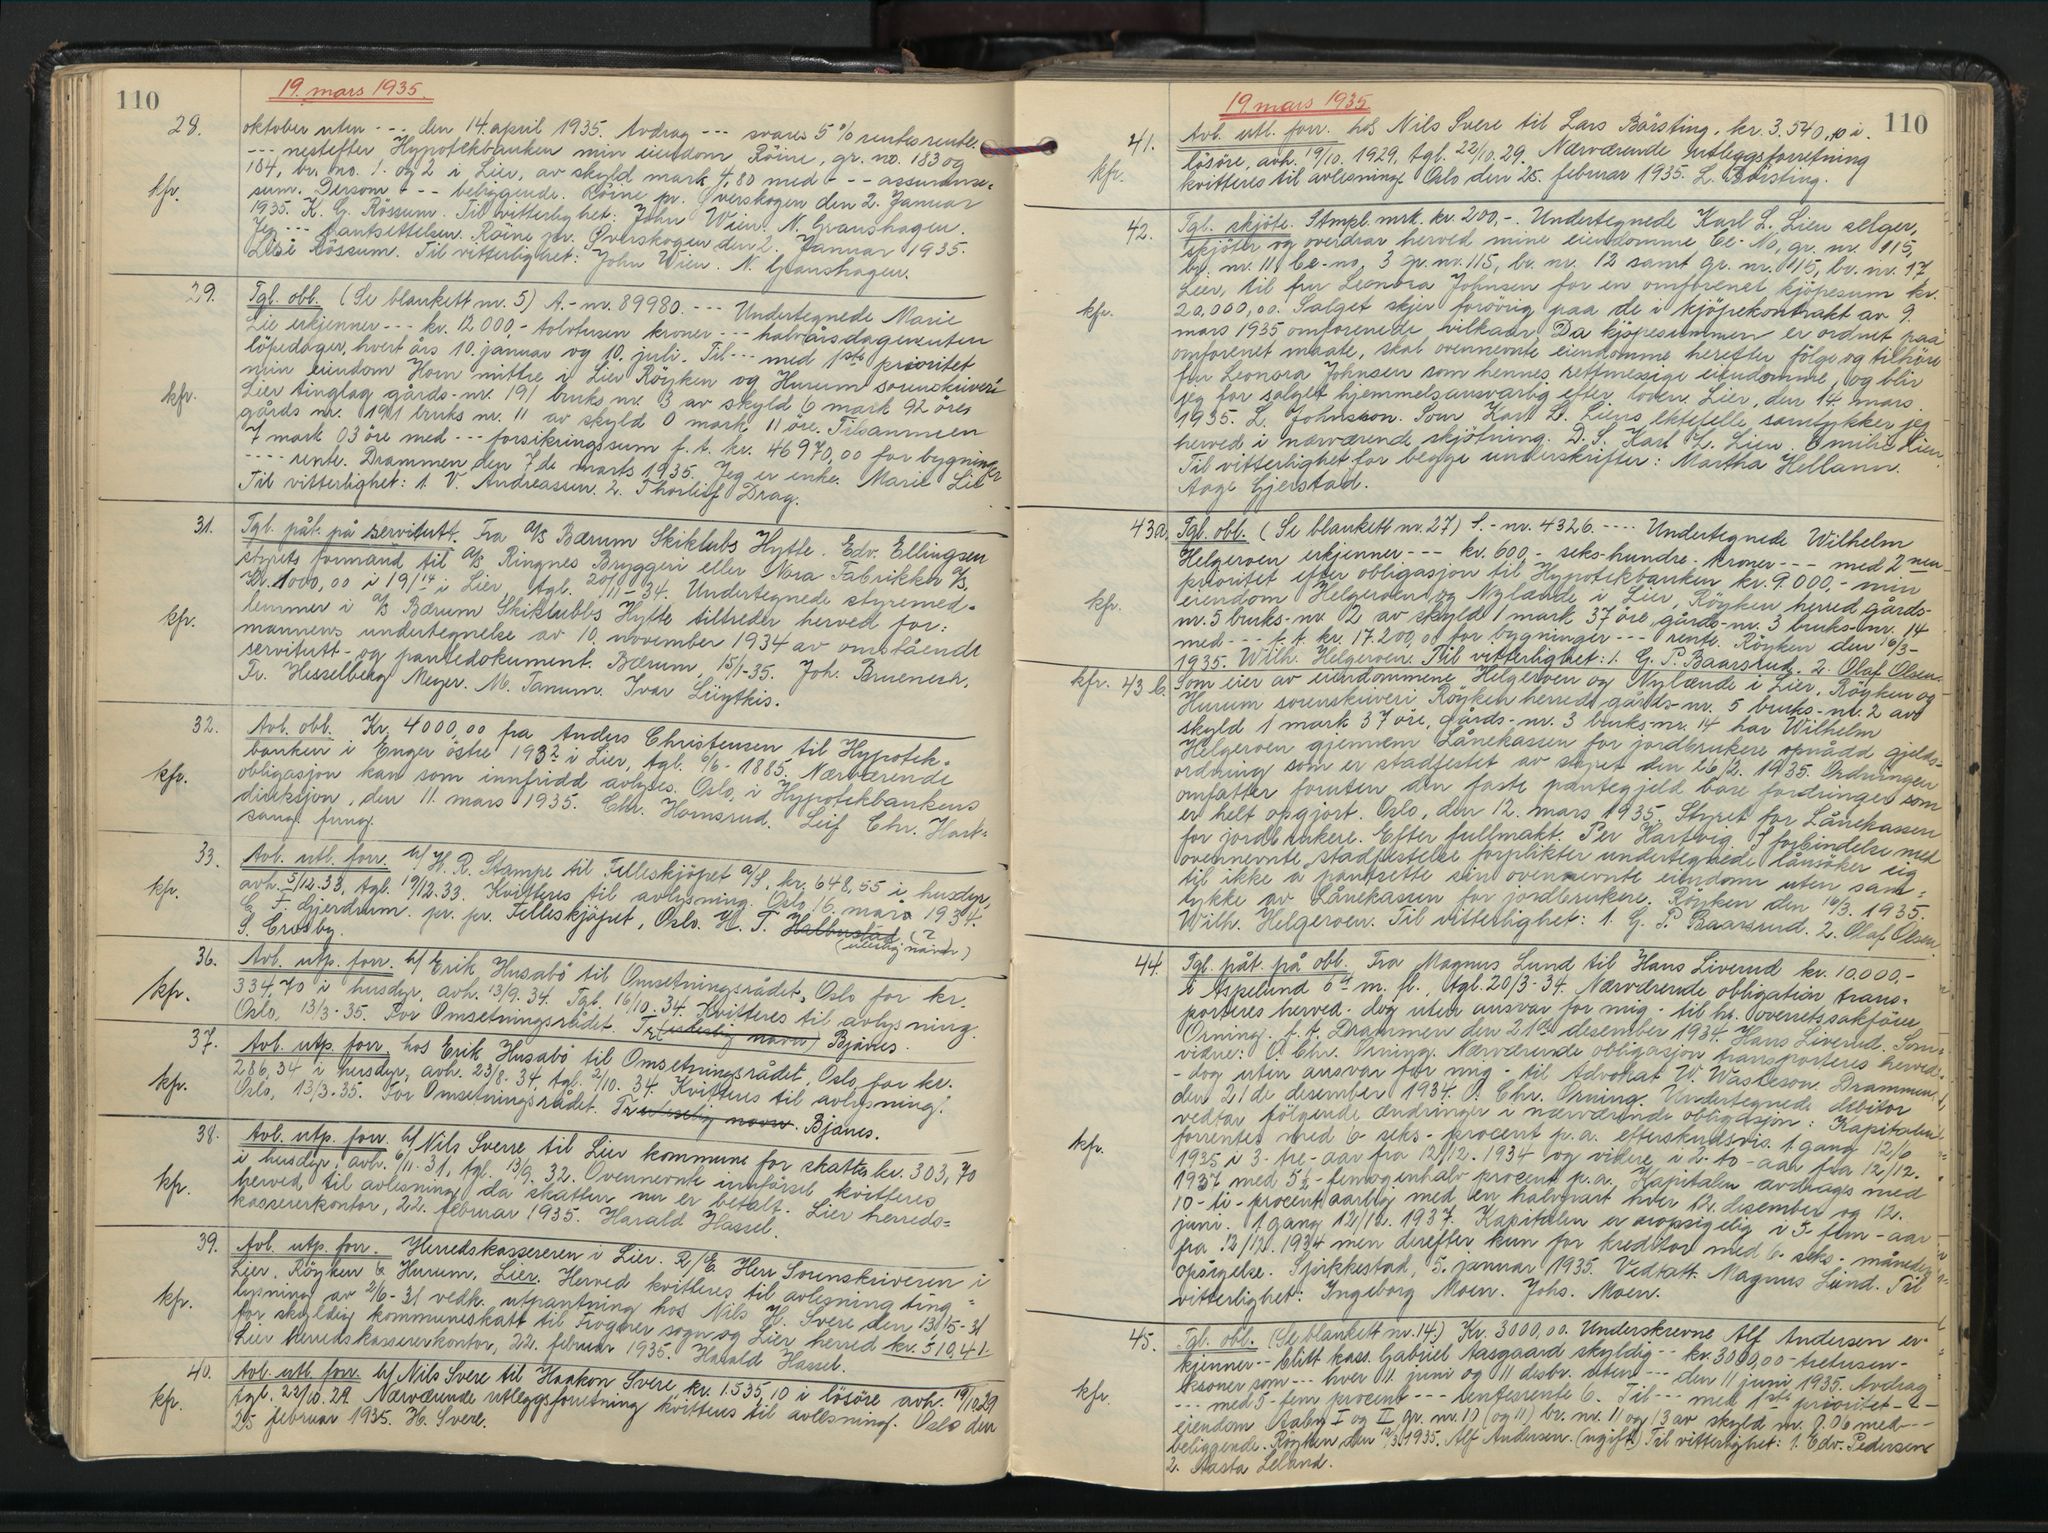 110
19. mars 1935.
28.
oktober uten --- den 14. april 1935. Avdrag --- svares 5% rentesrente.
--- nestefter Hypotekbanken min eiendom Röine, gr. no. 183 og
184, br. no. 1. og 2 i Lier, av skyld mark 4,80 med --- assuranse-
kfr.
sum. Dersom --- beliggende. Röine pr. Överskogen den 2. Januar
1935. K. G. Rössum. Til vitterlighet: John Wien. N. Granshagen.
Jeg --- pantsettelsen. Röine pr. Överskogen den 2. Januar 1935.
Lise Rössum. Til vitterlighet: John Wien. N. Granshagen.
29.
Tgl. obl. (Se blankett nr. 5) A.-nr. 89980. --- Undertegnede Marie
Lie erkjenner --- kr. 12000,- tolvtusen kroner --- halvårsdagen uten
löpedager, hvert års 10. januar og 10. juli. Til --- med 1ste prioritet
min eiendom Horn mittre i Lier Röyken og Hurum sorenskriveri
kfr.
Lier tinglag gårds-nr. 191 bruks nr. 3 av skyld 6 mark 92 öre,
gårds nr. 191 bruks nr. 11 av skyld 0 mark 11 öre. Tilsammen
7 mark 03 öre med --- forsikringssum f. t. kr. 46970,00 for bygninger
---- rente. Drammen den 7de marts 1935. Jeg er enke. Marie Lie
Til vitterlighet: 1. V. Andreassen. 2. Thorleif Drag.
31.
Tgl. påt. på servitutt. Fra A/S Bærum Skiklubs Hytte. Edv. Ellingsen
styrets formand til A/S Ringnes Bryggeri eller Nora Fabrikker A/S,
Kr. 1000,00 i 19/14 i Lier, tgl. 20/11-34. Undertegnede styremed-
lemmer i A/S Bærum Skiklubbs Hytte tiltreder herved for-
kfr.
mannens undertegnelse av 10. november 1934 av omstående
servitutt- og pantedokument. Bærum, 15/1-35. Joh. Bruenech.
Fr. Hesselberg Meyer. M. Tanum. Ivar
32.
Avl. obl. Kr. 4000,00 fra Anders Christensen til Hypotek-
banken i Enger östre 193² i Lier, tgl. 6/6-1885. Nærværende
kfr.
obligasjon kan som innfridd avlyses. Oslo, i Hypotekbankens
direksjon, den 11. mars 1935. Chr. Homsrud. Leif Chr. Hart-
sang. fung.
33.
Avl. utl. forr. h/ H. R. Stampe til Felleskjöpet A/S, kr. 648,55 i husdyr,
kfr.
avh. 5/12.33, tgl. 19/12.33. Kvitteres til avlysning. Oslo, 16. mars 1934.
C. F. Gjerdrum. pr. pr. Felleskjöpet, Oslo. H. T. Halbustad (?
S. Crosby. (uleslig navn)
36.
Avl. utp. forr. h/ Erik Husabö til Omsetningsrådet, Oslo for kr.
kfr.
334,70 i husdyr, avh. 13/9.34. Tgl. 16/10.34. Kvitteres til avlysning.
Oslo, 13/3-35. For Omsetningsrådet. Tr. (uleslig navn) Bjånes.
37.
Avl. utp. forr. hos Erik Husabö til Omsetningsrådet, Oslo, for kr.
kfr.
286,34 i husdyr, avh. 23/8.34, tgl. 2/10.34. Kvitteres til avlysning.
Oslo, 13/3-35. For Omsetningsrådet. Tr. uleselig navn. Bjånes.
38.
Avl. utp. forr. h/ Nils Sverre til Lier kommune for skatter kr. 303,70
i husdyr, avh. 6/11.31, tgl. 13/9.32. Ovennevnte utförsel kvitteres
kfr.
herved til avlesning, da skatten nu er betalt. Lier herreds-
kassererkontor, 22. februar 1935. Harald Hassel.
39.
Avl. utp. forr. Herredskassereren i Lier. R/E. Herr Sorenskriveren i
Lier, Röyken & Hurum, Lier. Herved kvitteres til avlesning ting-
kfr.
lysning av 2/6-31 vedk. utpantning hos Nils H. Svere den 13/5-31
for skyldig kommuneskatt til Frogner sogn og Lier herred kr. 519,41.
Lier herredskassererkontor, 22. februar 1935. Harald Hassel.
40.
Avl. utl. forr. h/ Nils Svere til Haakon Svere kr. 1.535,10 i lösöre avh. 19/10.29
kfr.
tgl. 22/10.29. Nærværende utleggsforretning kvitteres til avlesning. Oslo den
25 februar 1935. H. Svere.
110
19 mars 1935
41.
Avl. utl. forr. hos Nils Svere til Lars Bårsting, kr. 3.540,10 i
kfr.
lösöre, avh. 19/10.1929, tgl. 22/10.29. Nærværende utleggsforretning
kvitteres til avlesning. Oslo den 25. februar 1935. L. Bårsting.
42.
Tgl. skjöte. Stmpl. mrk. kr. 200,-. Undertegnede Karl L. Lien selger,
skjöter og overdrar herved mine eiendomme Ce-No, gr. nr. 115,
br. nr. 11 Ce-no, 3 gr. nr. 115, br. nr. 12 samt gr. nr. 115, br. nr. 17
Lier, til fru Leonora Johnsen for en omforenet kjöpesum kr.
kfr.
20,000,00. Salget skjer forövrig paa de i kjöpekontrakt av 9
mars 1935 omforenede vilkaar. Da kjöpesummen er ordnet paa
omforenet maate, skal ovennevnte eiendomme herefter fölge og tilhöre
fru Leonora Johnsen som hennes rettmessige eiendomme, og blir
jeg for salget hjemmelsansvarlig efter loven. Lier, den 14. mars
1935. L. Johnson. Som Karl L. Liens ektefelle samtykker jeg
herved i nærværende skjötning. D. S. Karl L. Lien. Emilie Lien.
Til vitterlighet for begge underskrifter: Martha Hellann.
Aage Gjerstad.
43a.
Tgl. obl. (Se blankett nr. 27) S.-nr. 4326. ---- Undertegnede Wilhelm
Helgeroen erkjenner --- kr. 600,- seks-hundre. kroner --- med 2nen
prioritet efter obligasjon til Hypotekbanken kr. 9.000,- min
kfr.
eiendom Helgeroen og Nylænde i Lier, Röyken herred gårds-
nr. 5 bruks-nr. 2 av skyld 1 mark 37 öre, gårds-nr. 3 bruks-nr. 14
med --- f. t. kr. 17.200,00 for bygninger --- rente. Röyken den 16/3-
1935. Wilh. Helgeroen. Til vitterlighet: 1. G. P. Baarsrud. 2. Olaf Olsen.
kfr. 43 b.
Som eier av eiendommene Helgeroen og Nylænde i Lier, Röyken og
Hurum sorenskriveri Röyken herred gårds-nr. 5 bruks-nr. 2 av
skyld 1 mark 37 öre, gårds-nr. 3 bruks-nr. 14 har Wilhelm
Helgeroen gjennem Lånekassen for jordbrukere opnådd gjelds-
ordning som er stadfestet av styret den 26/2. 1935. Ordningen
omfatter foruten den faste pantegjeld bare fordringer som
er helt opgjort. Oslo, den 12. mars 1935. Styret for Lånekassen
for jordbrukere. Efter fullmakt. Per Hartvig. I forbindelse med
ovennevnte stadfestelse forplikter undertegnede lånsöker sig
til ikke å pantsette sin ovennevnte eiendom uten sam-
tykke av Lånekassen for jordbrukere. Röyken den 16/3. 1935.
Wilh. Helgeroen. Til vitterlighet: 1. G. P. Baarsrud. 2. Olaf Olsen.
44.
Tgl. påt. på obl. Fra Magnus Lund til Hans Liverud kr. 10.000,-
i Aspelund 6 m. fl., tgl. 20/3-34. Nærværende obligation trans-
porteres herved - dog uten ansvar for mig - til hr. overretssakförer
Orning. f. t. Drammen den 21de desember 1934. Hans Liverud. Som-
vidre: O. Chr. Orning. Nærværende obligasjon transporteres herved-
- dog uten ansvar for mig - til Advokat W. Wasteson. Drammen
den 21de desember 1934. O. Chr. Orning. Undertegnede debitor
vedtar fölgende endringer i nærværende obligasjon: Kapitalen
kfr.
forrentes med 6- seks- procent p.a. efterskudsvis. 1. gang 12/6
1935 i 3- tre-aar fra 12/12. 1934 og videre i 2- to-aar fra 12/12.
1937 med 5½- femogenhalv procent p.a. Kapitalen avdrages med
10- ti- procent aarlig med en halvpart hver 12. desember og 12.
juni. 1. gang 12/12. 1937. Kapitalen er uopsigelig i 5- fem-aar
fra 12/12. 1934 men derefter kun for kreditor med 6- seks- måneders
opsigelse. Spikkestad, 5. januar 1935. Vedtatt. Magnus Lund. Til
vitterlighet: Ingeborg Moen. Johs. Moen.
45.
Tgl. obl. (Se blankett nr. 14.) Kr. 3000,00. Underskrevne Alf Andersen er-
kjenner -- Clitt kass. Gabriel Aasgaard skyldig -- kr. 3000,00- tretusen-
kroner som --- hver 11. juni og 11 desbr. uten --- den 11 juni 1935. Avdrag
kfr.
--- med 5- fem procent --- rentesrente 6. Til --- med 1ste prioritet --
eiendom Aaby I og II gr. nr. 10 (og 11) br. nr. 11 og 13 av skyld m. 0.06 med ---
beliggende. Röyken den 12/3.1935. Alf Andersen. (ugift.) Til vitterlighet: 1. Edv. Pedersen
2. Aasta Leland.